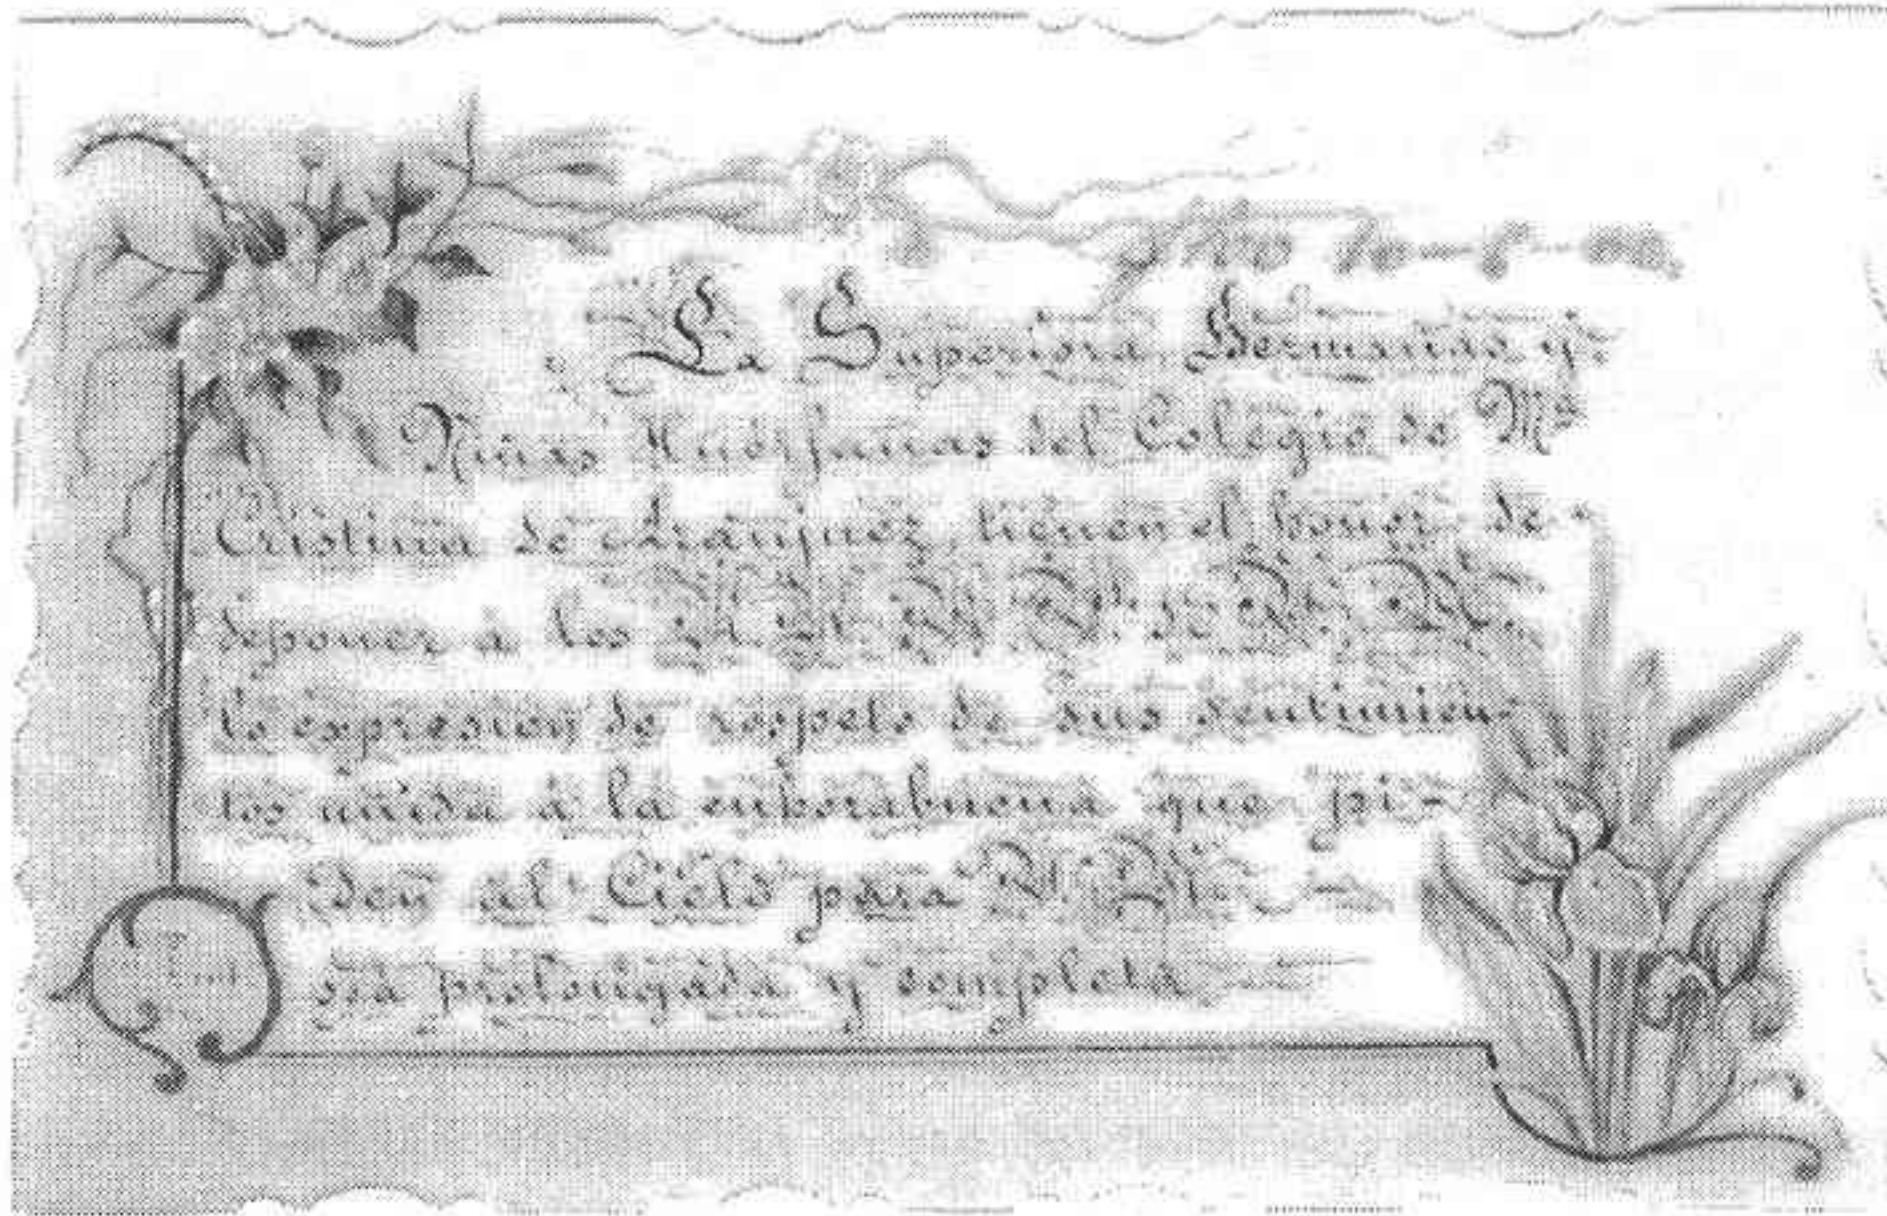 La Superiora, Hermanas y
Niñas Huérfanas del Colegio de Mª
Cristina de Aranjuez, tienen el honor de
deponer á los
la expresion de respeto de sus sentimien-
tos unida á la enhorabuena que pi-
den al Cielo para
sea prolongada y completa